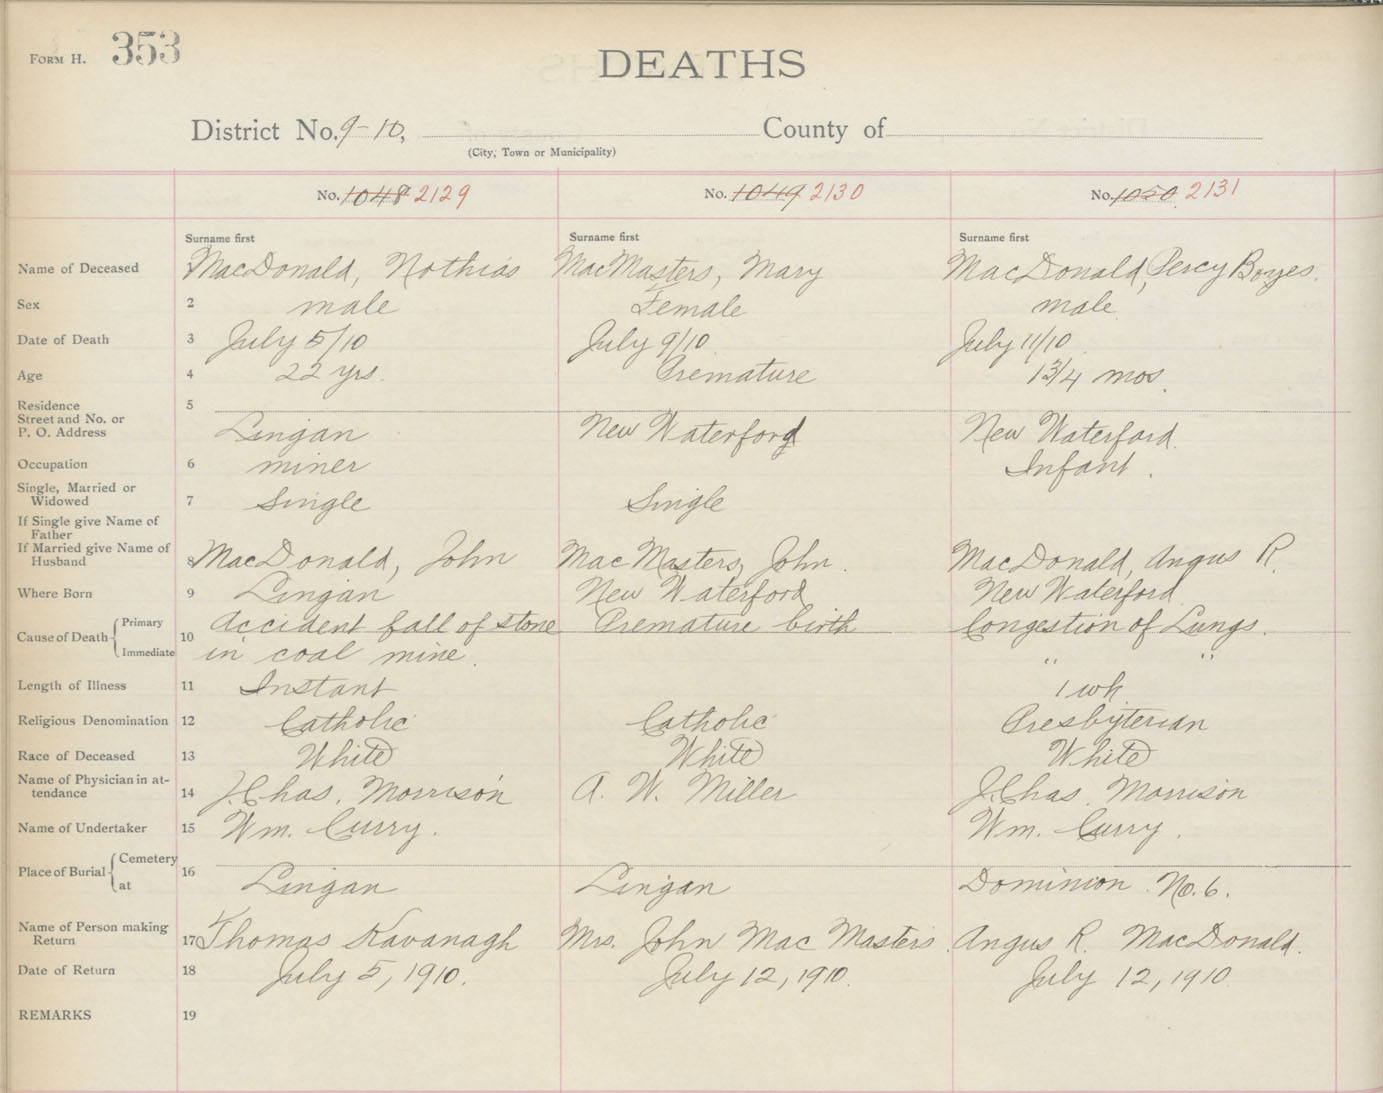 FORM H. 353
DEATHS
District No. 9-10, County of
(City, Town or Municipality)
No. 1048 2129 No. 1049 2130 No. 1050 2131
Surname first Surname first Surname first
Name of Deceased 1 MacDonald, Nothias MacMasters, Mary MacDonald, Percy Boyes.
Sex 2 male Female male
Date of Death 3 July 5/10 July 9/10 July 11/10
Age 4 22 yrs. Premature 1 3/4 mos.
Residence 5
Street and No. or
P. O. Address Lingan New Waterford New Waterford.
Occupation 6 miner Infant.
Single, Married or
Widowed 7 Single Single
If Single give Name of
Father
If Married give Name of
Husband 8 MacDonald, John MacMasters, John. MacDonald, Angus R.
Where Born 9 Lingan New Waterford New Waterford
Cause of Death { Primary 10 Accident fall of stone Premature birth Congestion of Lungs.
Immediate in coal mine. " "
Length of Illness 11 Instant 1 wk
Religious Denomination 12 Catholic Catholic Presbyterian
Race of Deceased 13 White White White
Name of Physician in at-
tendance 14 J. Chas. Morrison A. W. Miller J. Chas. Morrison
Name of Undertaker 15 Wm. Curry. Wm. Curry.
Place of Burial { Cemetery 16
at Lingan Lingan Dominion No. 6.
Name of Person making
Return 17 Thomas Kavanagh Mrs. John Mac Masters. Angus R. MacDonald.
Date of Return 18 July 5, 1910. July 12, 1910. July 12, 1910
REMARKS 19